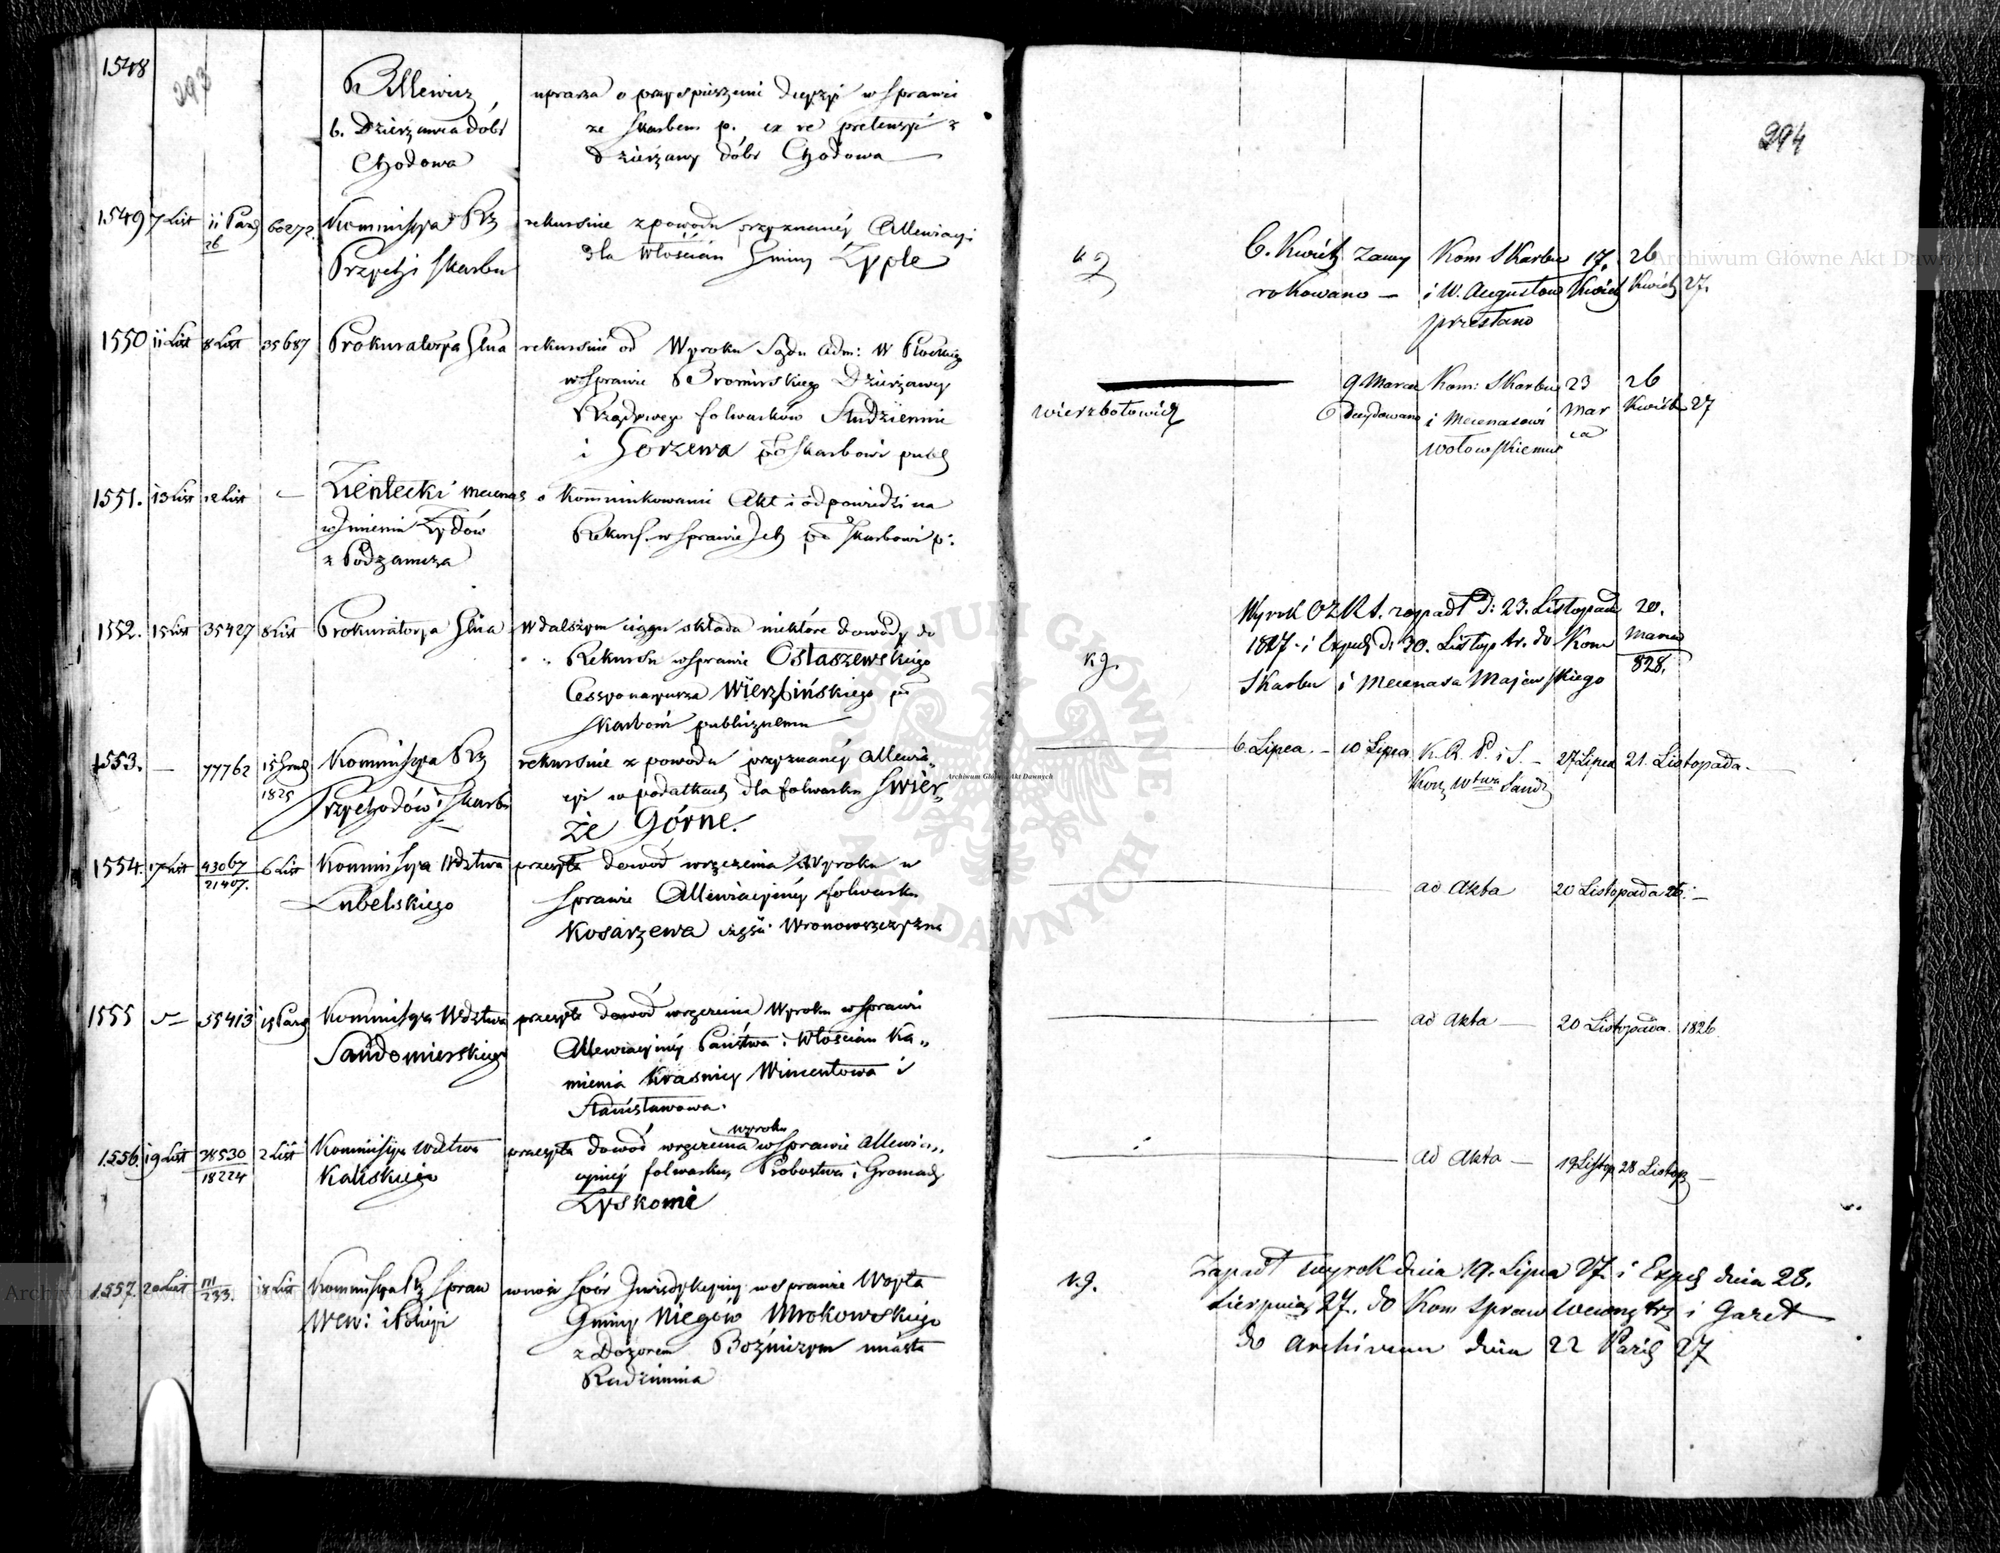 1548
293
Billewicz
b. Dzierżawca dóbr
Chodowa
uprasza o przyspieszenie Decyzji w sprawie
ze Skarbem p. ex re pretensji z
Dzierżawy dóbr Chodowa
1549 7 List 11 Paźd 26 60272. Kommissya Rz
Przych i Skarbu
rekursuie z powodu przyznanéy Allewiacyi
dla Włościan Gminy Zyple
1550 11 List 8 List 35687 Prokuratorya Glna
rekursuie od Wyroku Sądu Adm: W Płockiego
w Sprawie Bromirskiego Dzierżawcy
Rządowego folwarków Studzienni
i Gorzewa pko Skarbowi publ
1551. 13 List 12 List — Zientecki mecenas
w Imieniu Żydów
z Podzamcza
o kommunikowanie Akt i odpowiedzi na
Rekurs. w sprawie Ich pko Skarbowi p.
1552. 15 List 35427 8 List Prokuratorya Glna
W dalszym ciągu składa niektóre dowody do
Rekursu w sprawie Ostaszewskiego
Cessyonaryusza Wierzbińskiego pko
Skarbowi publicznemu
1553. — 77762 15 Grud 1825 Kommissya Rz
Przychodów i Skarbu
rekursuie z powodu przyznanéy Allewia„
cyi w podatkach dla folwarku Swier„
że Górne.
1554. 17 List 43067 21407. 6 List Kommissya Wdztwa
Lubelskiego
przesyła dowód wręczenia Wyroku w
sprawie Allewiacyinéy folwarku
Kosarzewa części Wronowszczyzna
1555 55413 15 Paźd Kommissya Wdztwa
Sandomierskiego
przesyła dowód wręczenia Wyroku w sprawie
Allewiacyinéy Państwa i Włościan Ka„
mienia Krasnicy Wincentowa i
Stanisławowa.
1556. 19 List 28530 18224 2 List Kommissya Wdztwa
Kaliskiego
wyroku
przesyła dowód wręczenia w Sprawie Allewia„
cyinéy folwarku, Probostwa i Gromady
Lyskomi
1557. 20 List 233. 18 List Kommissya Rz Spraw
Wew: i Policyi
wnosi Spór Jurisdykcyiny w sprawie Woyta
Gminy Niegów Mrokowskiego
z Dozorem Bożniczym miasta
Radzimina
294
6. Kwiet zawy Kom Skarbu 17. 26
rokowano — i W. Augustow Kwiet Kwiet 27.
przesłano
9 Marca Kom: Skarbu 23 26
Wierzbołowicz Decydowano i Mecenasowi Mar Kwiet 27
Wołowskiemu ca
Wyrok zapadł d: 23. Listopada 20.
1827 i Exped d. 30. Listop t.r. do Kom Marca
kg. Skarbu i Mecenasa Majewskiego 828.
6. Lipca. — 10 Lipca K. R. P. i S. — 27 Lipca 21. Listopada —
Kom Wtwa Sand
ad Akta 20 Listopada 26. —
ad Akta — 20 Listopada. 1826
ad Akta — 19 Listop 28 Listop —
kg. Zapadł wyrok dnia 19. Lipca 27. i Exped dnia 28.
Sierpnia 27. do Kom spraw Wewnętrz i Gazet
do Archiwum dnia 22 Paźd 27
Archiwum Główne Akt Dawnych
ARCHIWUM GŁÓWNE AKT DAWNYCH